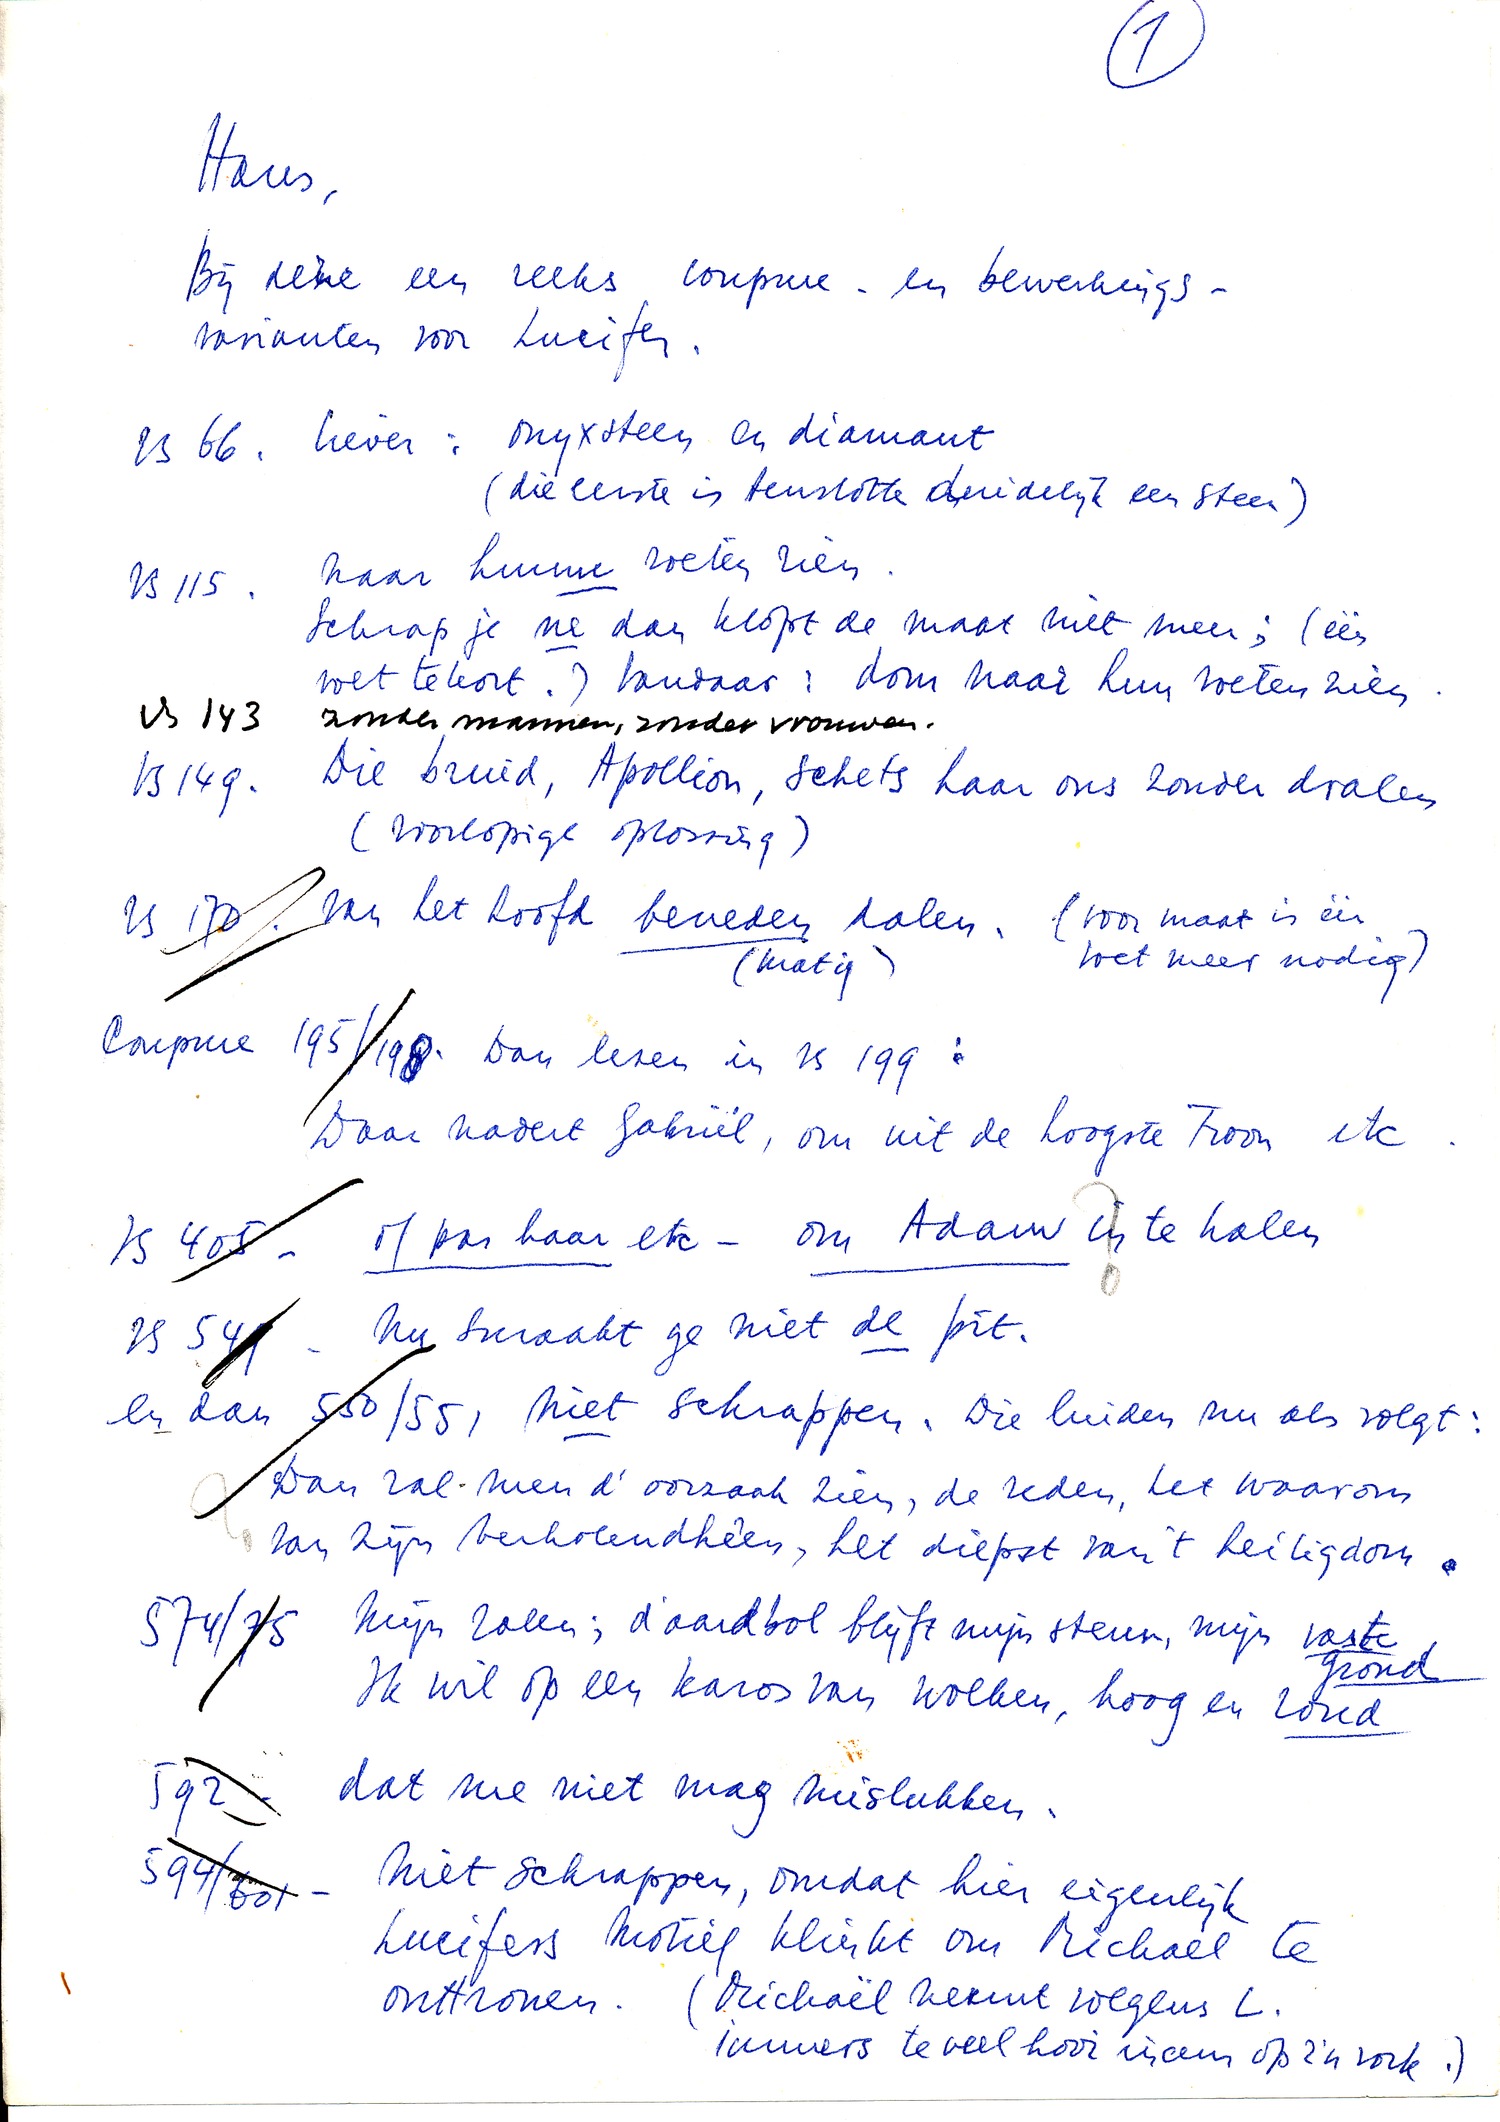 1
Hans,
Bij deze een reeks coupure- en bewerkings-
varianten voor Lucifer.
vs 66. liever: onyxsteen en diamant
(die eerste is tenslotte duidelijk een steen)
vs 115. naar hunne voeten zien.
Schrap je ne dan klopt de maat niet meer; (één
voet tekort.) Vandaar: dom naar hun voeten zien.
vs 143 zonder mannen, zonder vrouwen.
vs 149. Die bruid, Apollion, schets haar ons zonder dralen
(voorlopige oplossing)
vs 170. van het hoofd beneden dalen. (voor maat is één
(matig) voet meer nodig)
Coupure 195/198. Dan lezen in vs 199:
Daar nadert Gabriël, om uit de hoogste Troon etc.
vs 405 - of pas haar etc - om Adam in te halen
?
vs 541 - Nu smaakt ge niet de pit.
en dan 550/551 niet schrappen. Die luiden nu als volgt:
Dan zal men d'oorzaak zien, de reden, het waarom
van zijn verholendhêen, het diepst van 't heiligdom.
574/75 Mijn zalen; d'aardbol blijft mijn steun, mijn vaste
grond
Ik wil op een karos van wolken, hoog en rond
592 - dat me niet mag mislukken.
594/601 - Niet schrappen, omdat hier eigenlijk
Lucifers motief klinkt om Michaël te
onttronen. (Michaël neemt volgens L.
immers te veel hooi ineens op z'n vork.)